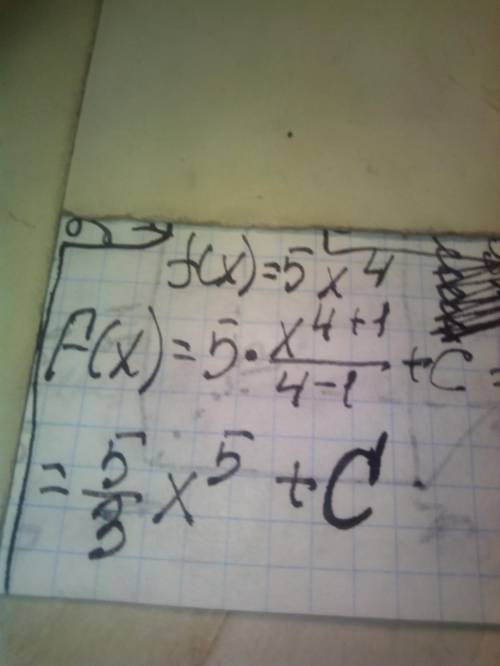 f(x)=5x^4
F(x)=5·x^(4+1)/(4-1)+C=
=5/3 x^5+C